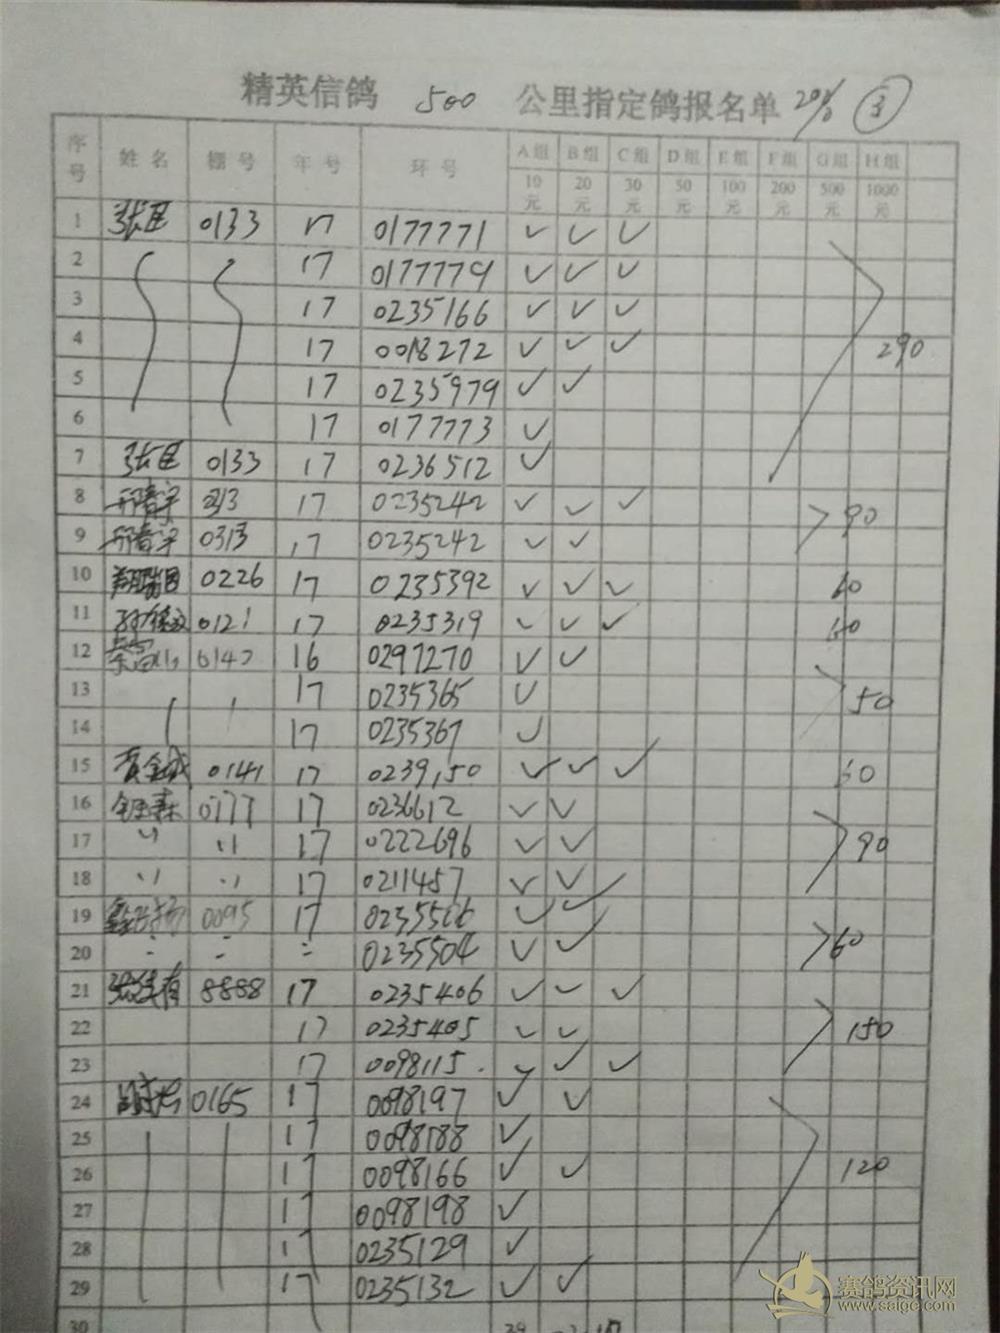 精英信鸽 500 公里指定鸽报名单 ③
序号 姓名 棚号 年号 环号 A组 B组 C组 D组 E组 F组 G组 H组
10元 20元 30元 50元 100元 200元 500元 1000元
1 0133 17 0177771 ✓ ✓ ✓
2 17 0177779 ✓ ✓ ✓
3 17 0235166 ✓ ✓ ✓
4 17 0018272 ✓ ✓ ✓ 290
5 17 0235979 ✓ ✓
6 17 0177773 ✓
7 0133 17 0236512 ✓
8 17 0235242 ✓ ✓ ✓ 90
9 0313 17 0235242 ✓ ✓
10 0226 17 0235392 ✓ ✓ ✓ 60
11 0121 17 0235319 ✓ ✓ ✓ 60
12 16 0297270 ✓ ✓
13 17 0235365 ✓ 50
14 17 0235367 ✓
15 0141 17 0239150 ✓ ✓ ✓ 60
16 0177 17 0236612 ✓ ✓
17 〃 〃 17 0222696 ✓ ✓ 90
18 〃 〃 17 0211457 ✓ ✓
19 0095 17 0235506 ✓ ✓
20 0235504 ✓ ✓ 60
21 8888 17 0235406 ✓ ✓ ✓
22 17 0235405 ✓ ✓ 150
23 17 0098115 ✓ ✓ ✓
24 0165 17 0098197 ✓ ✓
25 17 0098188 ✓
26 17 0098166 ✓ ✓ 120
27 17 0098198 ✓
28 17 0235129 ✓
29 17 0235132 ✓ ✓
30
赛鸽资讯网
www.saige.com